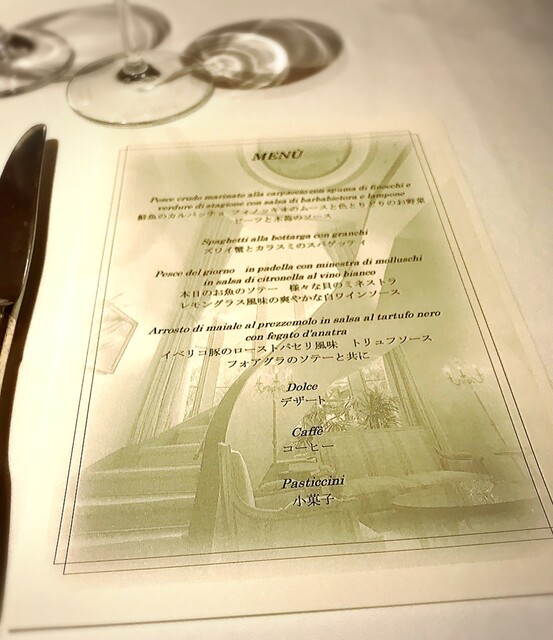 MENÙ
Pesce crudo marinato alla carpaccio con spuma di finocchi e
verdure di stagione con salsa di barbabietora e lampone
鮮魚のカルパッチョ フィノッキオのムースと色とりどりのお野菜
ビーツと木苺のソース
Spaghetti alla bottarga con granchi
ズワイ蟹とカラスミのスパゲッティ
Pesce del giorno in padella con minestra di molluschi
in salsa di citronella al vino bianco
本日のお魚のソテー 様々な貝のミネストラ
レモングラス風味の爽やかな白ワインソース
Arrosto di maiale al prezzemolo in salsa al tartufo nero
con fegato d'anatra
イベリコ豚のローストパセリ風味 トリュフソース
フォアグラのソテーと共に
Dolce
デザート
Caffè
コーヒー
Pasticcini
小菓子